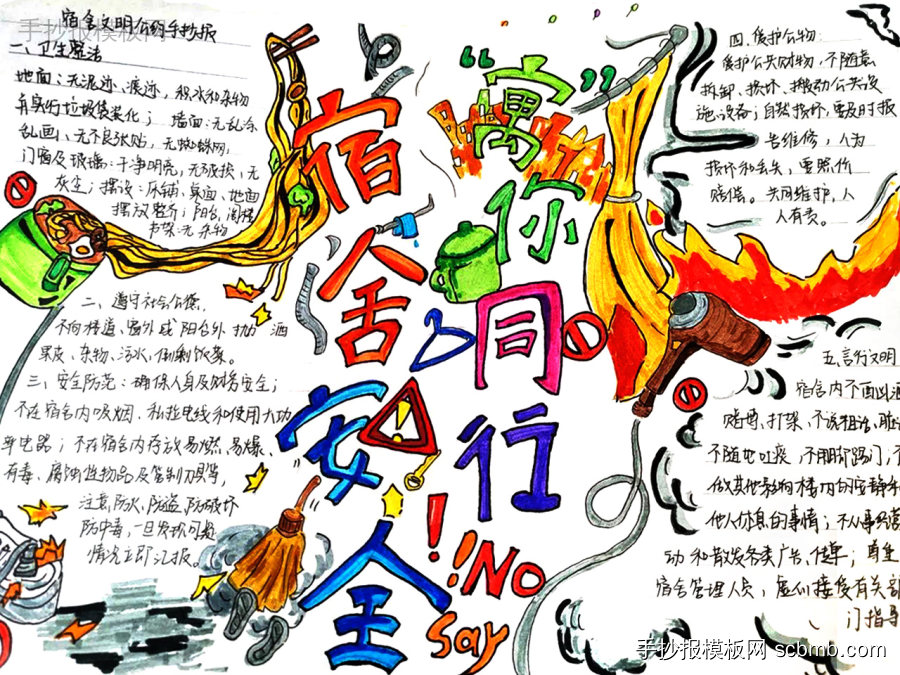 宿舍文明公约手抄报
手抄报模板网
一、卫生整洁
地面：无泥迹、痰迹，积水和杂物
有实行垃圾袋装化；墙面：无乱涂
乱画、无不良张贴，无蜘蛛网，
门窗及玻璃：干净明亮，无破损、无
灰尘；摆设：床铺、桌面、地面
摆设整齐；阳台，阁楼
书架：无杂物
二、遵守社会公德，
不向楼道、窗外或阳台外扔 洒
果皮、杂物、污水，倒剩饭菜。
三、安全防范：确保人身及财务安全；
不在宿舍内吸烟、私拉电线和使用大功
率电器；不在宿舍内存放易燃、易爆、
有毒、腐蚀性物品及管制刀具等，
注意防火、防盗、防破坏
防中毒，一旦发现可疑
情况立即汇报。
宿舍安全
“寓”
你同往
!!!No
say
四、爱护公物：
爱护公共财物，不随意
拆卸、损坏、搬动公共设
施、设备；自然损坏，要及时报
告维修，人为
损坏和丢失，要照价
赔偿。共同维护，人
人有责。
五、言行文明
宿舍内不酗酒
赌博，打架、不说粗话，脏
不随地吐痰，不用脚踢门，不
做其他影响楼内的安静和
他人休息的事情；不从事经营
动和散发各类广告、传单；尊重
宿舍管理人员，虚心接受有关部
门指导
手抄报模板网 scbmb.com